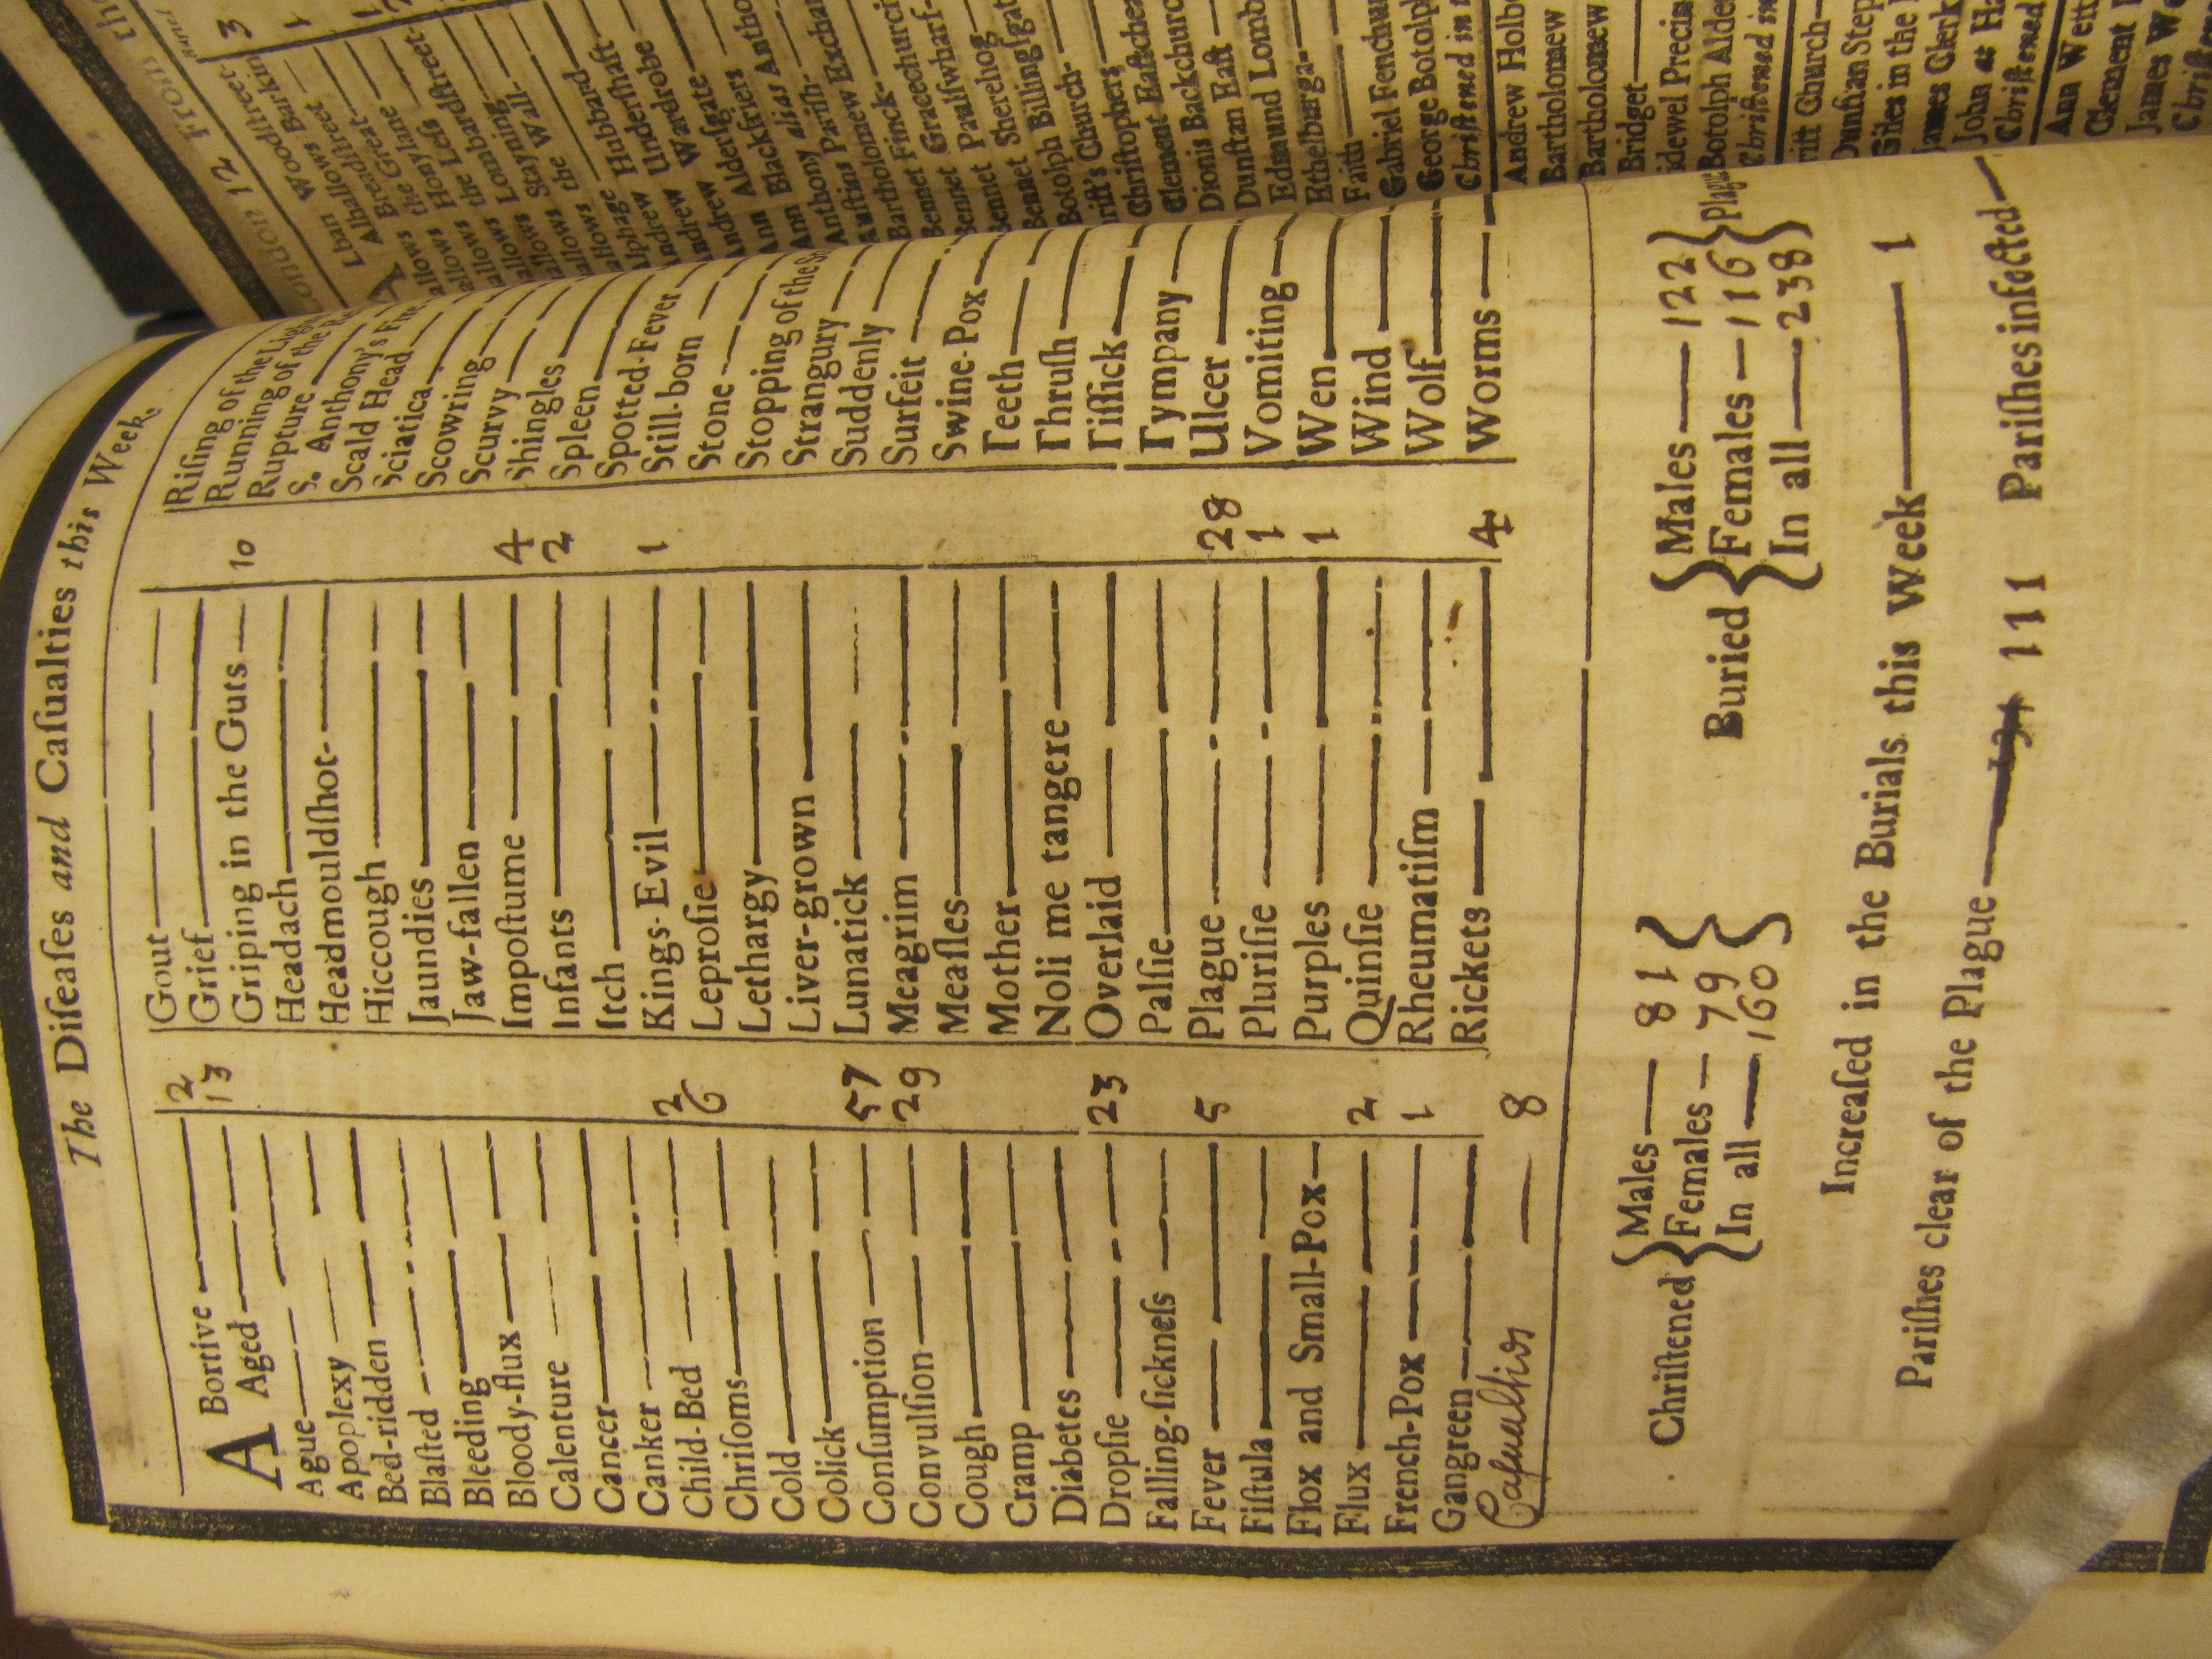 The Diſeaſes and Caſualties this Week.
A Bortive 2
Aged 13
Ague
Apoplexy
Bed-ridden
Blaſted
Bleeding
Bloody-flux
Calenture
Cancer
Canker
Child-Bed 2
Chriſoms 6
Cold
Colick
Conſumption 57
Convulſion 29
Cough
Cramp
Diabetes
Dropſie 23
Falling-ſickneſs
Fever 5
Fiſtula
Flox and Small-Pox
Flux 2
French-Pox 1
Gangreen
Caſualties 8
Gout
Grief
Griping in the Guts 10
Headach
Headmouldſhot
Hiccough
Jaundies
Jaw-fallen
Impoſtume 4
Infants 2
Itch
Kings-Evil 1
Leproſie
Lethargy
Liver-grown
Lunatick
Meagrim
Meaſles
Mother
Noli me tangere
Overlaid
Palſie
Plague 28
Pluriſie 1
Purples 1
Quinſie
Rheumatiſm
Rickets 4
Riſing of the
Running of the
Rupture
S. Anthony's
Scald Head
Sciatica
Scowring
Scurvy
Shingles
Spleen
Spotted-Fever
Still-born
Stone
Stopping of the
Strangury
Suddenly
Surfeit
Swine-Pox
Teeth
Thruſh
Tiſſick
Tympany
Ulcer
Vomiting
Wen
Wind
Wolf
Worms
Chriſtened { Males 81
Females 79
In all 160 }
Buried { Males 122
Females 116
In all 238 } Plague
Increaſed in the Burials this Week 1
Pariſhes clear of the Plague 111 Pariſhes infected
Woodſtreet 3
Alhallows
Breadſtreet
Great
Honylane
Leſs
the Lombardſtreet
Louning
Stayning
the Wall
Hubbard
Underſhaft
Andrew Wardrobe
Ann Alderſgate
Ann Blackfriers
Bartholomew Exchan
Bennet Finck
Bennet Gracechurch
Bennet Paulſwharf
Bennet Sherehog
Botolph Billingſgat
Chriſt's Church
Chriſtophers
Clement Eaſtcheap
Dionis Backchurch
Dunſtan Eaſt
Edmund Lomb
Ethelburga
Faith
Gabriel Fenchur
George Botolph
Chriſtened in
Andrew Holbo
Bartholomew
Bartholomew
Bridget
Botolph Alde
Chriſtened in
Dunſtan
Giles in the
James Clerk
John at Ha
Chriſtened
Ann
Clement
James